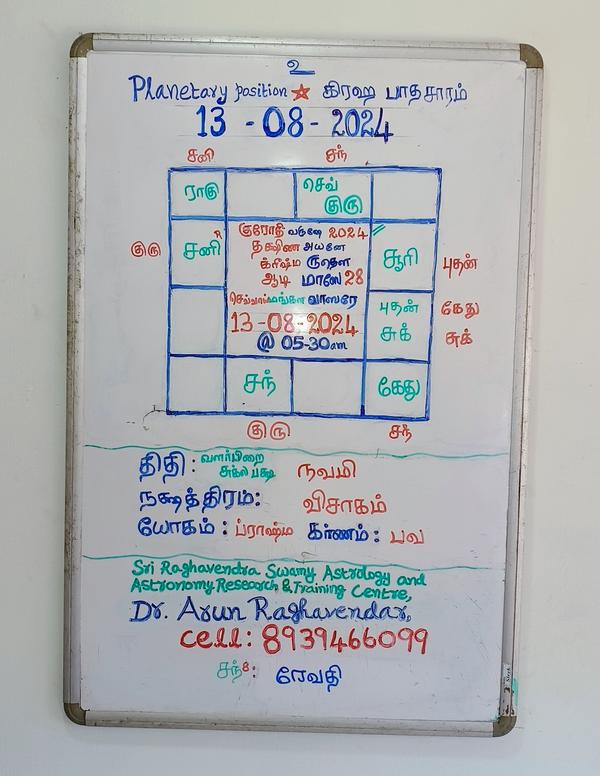 உ
Planetary position கிரஹ பாதசாரம்
13 - 08 - 2024
சனி சந்
ராகு செவ்
குரு
குரோதி வருஷே 2024
தக்ஷிண அயனே
குரு சனி R க்ரீஷ்ம ருதௌ சூரி புதன்
ஆடி மாஸே 28
செவ்வாய் மங்கள வாஸரே புதன் கேது
13-08-2024 சுக் சுக்
@ 05-30am
சந் கேது
குரு சந்
திதி : வளர்பிறை
சுக்ல பக்ஷ நவமி
நக்ஷத்திரம்: விசாகம்
யோகம் : ப்ராஷ்ம கர்ணம் : பவ
Sri Raghavendra Swamy Astrology and
Astronomy Research & Training Centre,
Dr. Arun Raghavendar,
Cell: 8939466099
சந் 8: ரேவதி